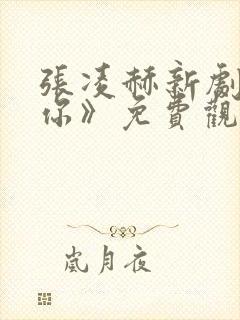 張凌赫新劇
你》免費觀
嵐月夜